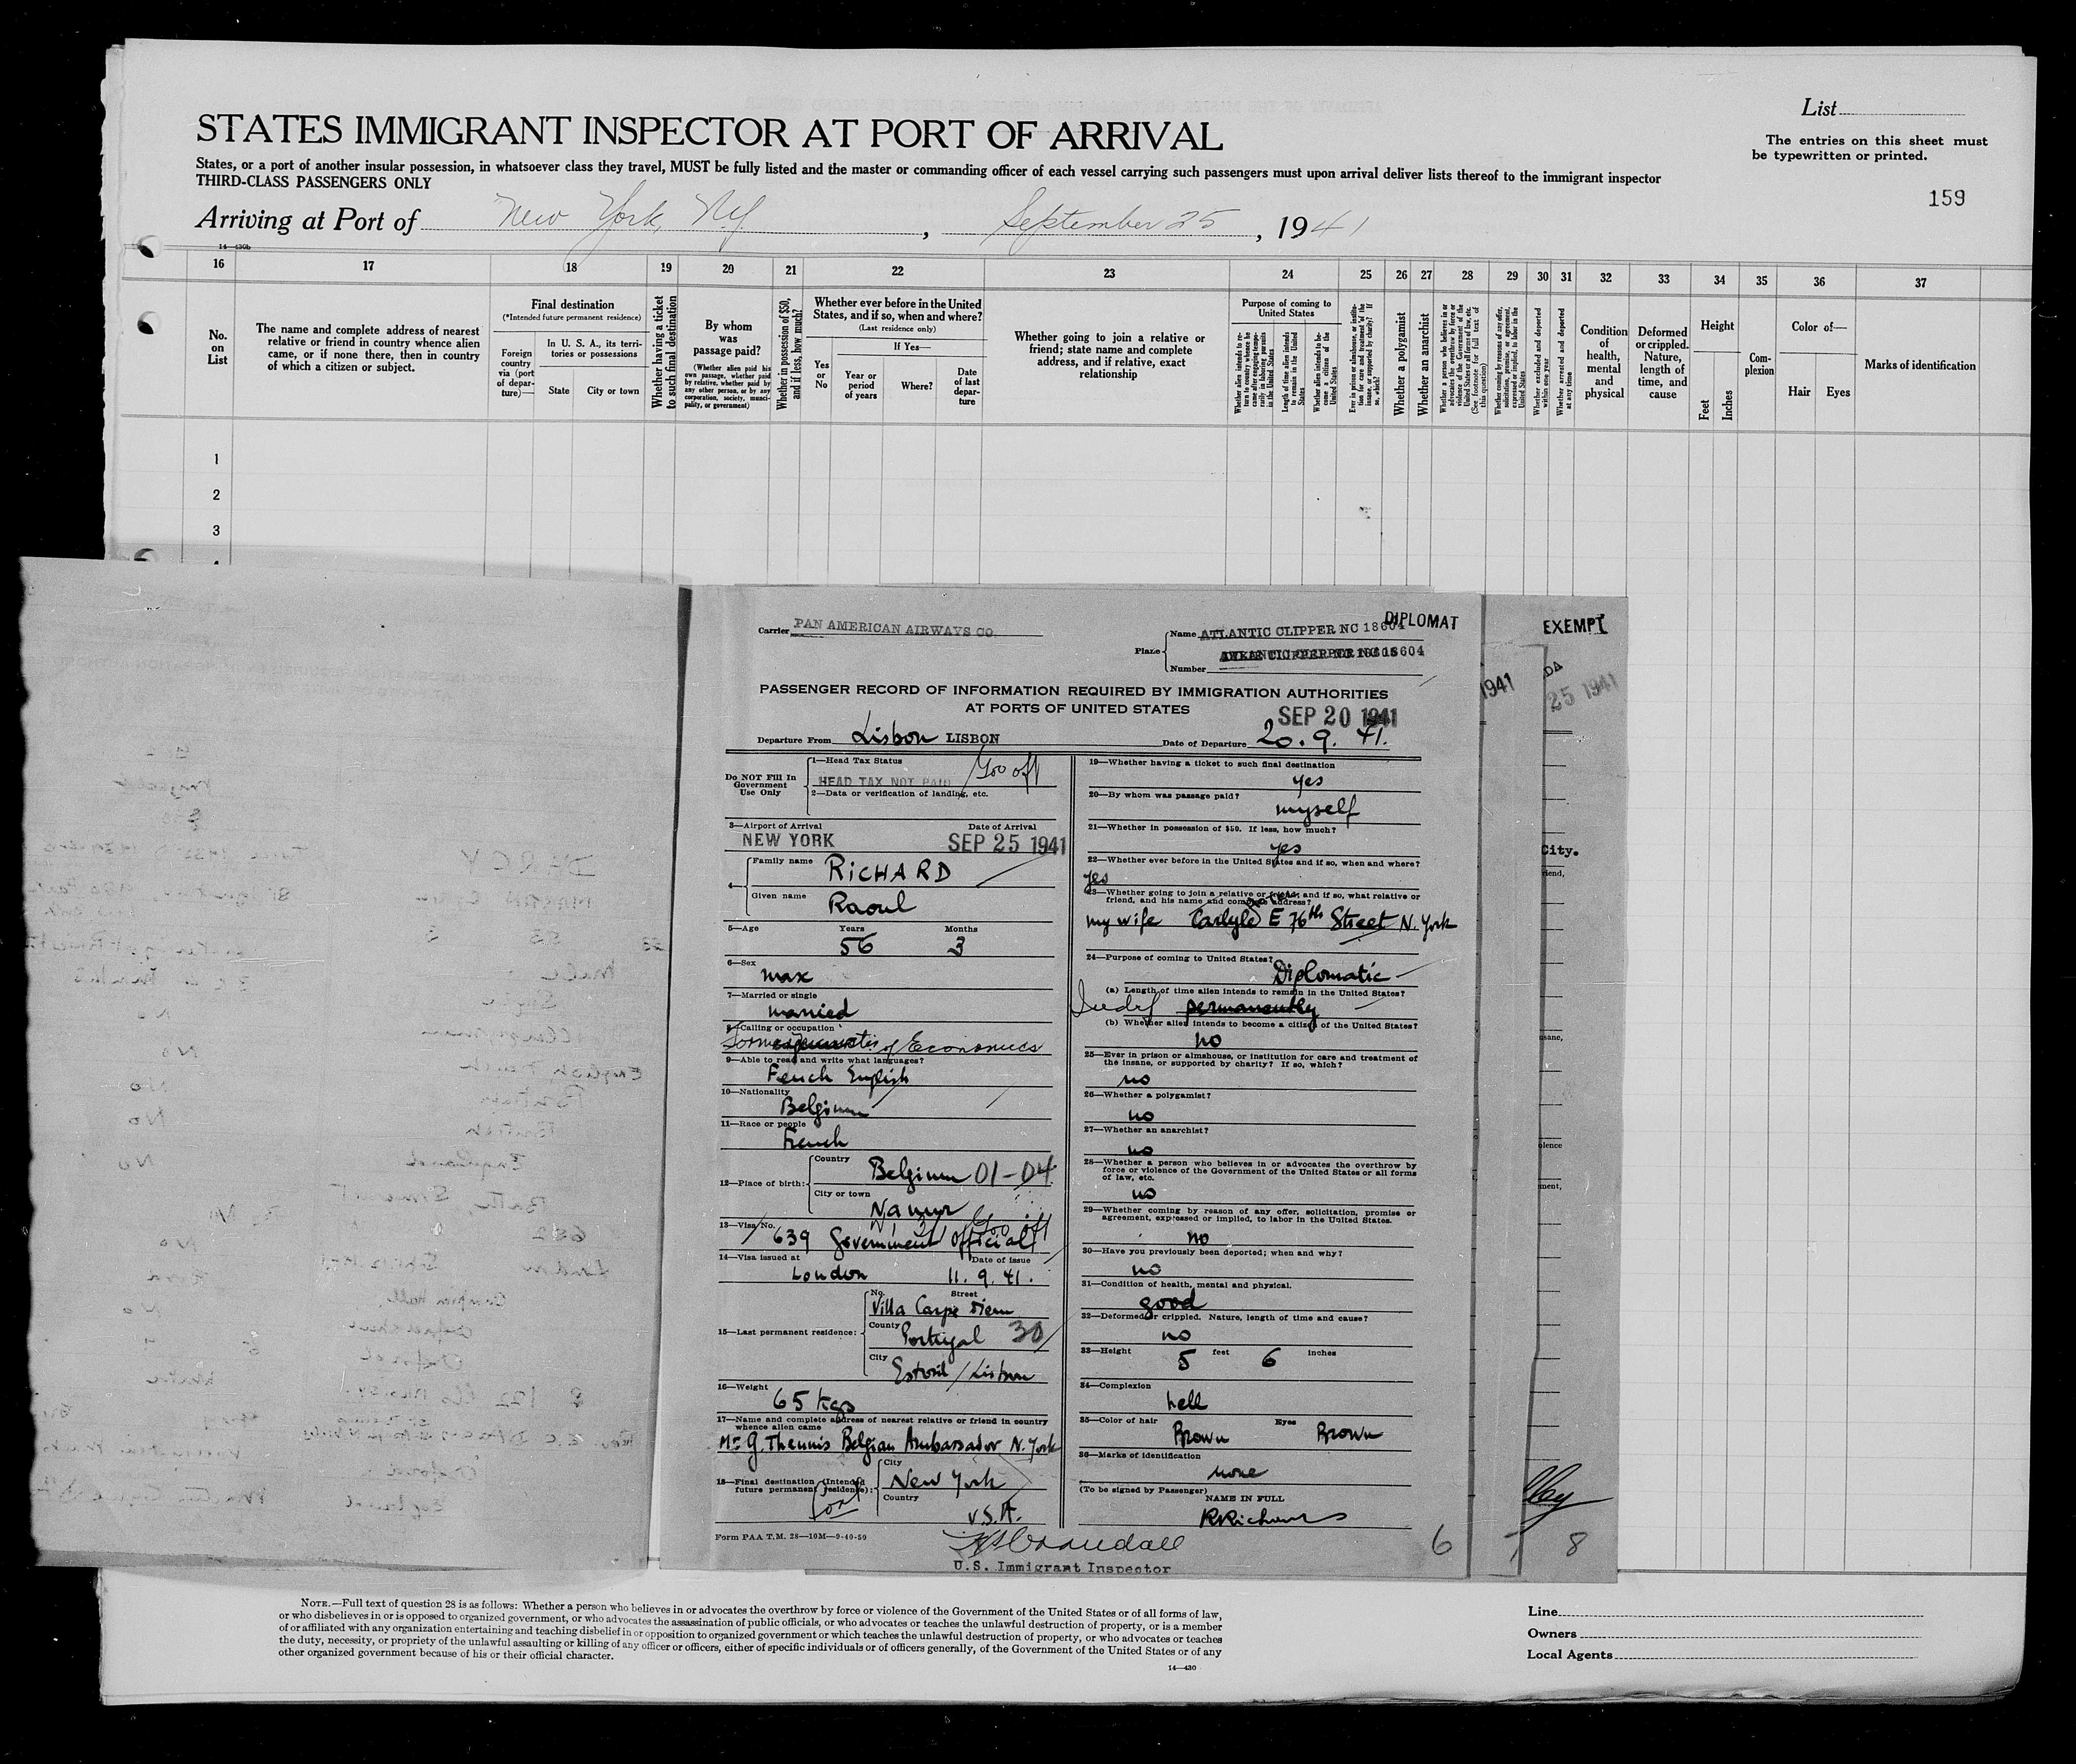 List
STATES IMMIGRANT INSPECTOR AT PORT OF ARRIVAL
The entries on this sheet must
be typewritten or printed.
States, or a port of another insular possession, in whatsoever class they travel, MUST be fully listed and the master or commanding officer of each vessel carrying such passengers must upon arrival deliver lists thereof to the immigrant inspector
THIRD-CLASS PASSENGERS ONLY
159
Arriving at Port of New York, N.Y. , September 25 , 1941
14—430b
16 17 18 19 20 21 22 23 24 25 26 27 28 29 30 31 32 33 34 35 36 37
No. on List
The name and complete address of nearest relative or friend in country whence alien came, or if none there, then in country of which a citizen or subject.
Final destination
(*Intended future permanent residence)
Foreign country via (port of departure)—
In U. S. A., its territories or possessions
State
City or town
Whether having a ticket to such final destination
By whom was passage paid?
(Whether alien paid his own passage, whether paid by relative, whether paid by any other person, or by any corporation, society, municipality, or government)
Whether in possession of $50, and if less, how much?
Whether ever before in the United States, and if so, when and where?
(Last residence only)
Yes or No
If Yes—
Year or period of years
Where?
Date of last departure
Whether going to join a relative or friend; state name and complete address, and if relative, exact relationship
Purpose of coming to United States
Whether alien intends to return to country whence he came after engaging temporarily in laboring pursuits in the United States
Length of time alien intends to remain in the United States
Whether alien intends to become a citizen of the United States
Ever in prison or almshouse, or institution for care and treatment of the insane, or supported by charity? If so, which?
Whether a polygamist
Whether an anarchist
Whether a person who believes in or advocates the overthrow by force or violence of the Government of the United States or all forms of law, etc. (See footnote for full text of this question)
Whether coming by reason of any offer, solicitation, promise, or agreement, expressed or implied, to labor in the United States
Whether excluded and deported within one year
Whether arrested and deported at any time
Condition of health, mental and physical
Deformed or crippled. Nature, length of time, and cause
Height
Feet
Inches
Complexion
Color of—
Hair
Eyes
Marks of identification
1
2
3
DIPLOMAT
EXEMPT
Carrier PAN AMERICAN AIRWAYS CO.
Plane
Name ATLANTIC CLIPPER NC 18604
Number
PASSENGER RECORD OF INFORMATION REQUIRED BY IMMIGRATION AUTHORITIES
AT PORTS OF UNITED STATES
SEP 20 1941
1941
25 1941
Departure From Lisbon LISBON
Date of Departure 20. 9. 41.
Do NOT Fill In
Government
Use Only
1—Head Tax Status
HEAD TAX NOT PAID
2—Data or verification of landing, etc.
3—Airport of Arrival
Date of Arrival
NEW YORK SEP 25 1941
4—
Family name RICHARD
Given name Raoul
5—Age
Years 56
Months 3
6—Sex
max
7—Married or single
married
8—Calling or occupation
of Economics
9—Able to read and write what languages?
French English
10—Nationality
Belgium
11—Race or people
French
12—Place of birth:
Country
Belgium 01-04
City or town
Namur
13—Visa No.
639 Government Official
14—Visa issued at
Date of issue
London 11. 9. 41.
15—Last permanent residence:
No. Street
Villa Carpe Diem
County
Portugal 30
City
Estoril / Lisbon
16—Weight
65 kgs
17—Name and complete address of nearest relative or friend in country
whence alien came
Mr G. Theunis Belgian Ambassador N. York
18—Final destination (Intended
future permanent residence):
City
New York
Country
U.S.A.
Form PAA T.M. 28—10M—9-40-50
19—Whether having a ticket to such final destination
yes
20—By whom was passage paid?
myself
21—Whether in possession of $50. If less, how much?
yes
22—Whether ever before in the United States and if so, when and where?
yes
23—Whether going to join a relative or friend; and if so, what relative or
friend, and his name and complete address?
my wife Carlyle E 76th Street N. York
24—Purpose of coming to United States?
Diplomatic
(a) Length of time alien intends to remain in the United States?
Indef permanently
(b) Whether alien intends to become a citizen of the United States?
no
25—Ever in prison or almshouse, or institution for care and treatment of
the insane, or supported by charity? If so, which?
no
26—Whether a polygamist?
no
27—Whether an anarchist?
no
28—Whether a person who believes in or advocates the overthrow by
force or violence of the Government of the United States or all forms
of law, etc.
no
29—Whether coming by reason of any offer, solicitation, promise or
agreement, expressed or implied, to labor in the United States.
no
30—Have you previously been deported; when and why?
no
31—Condition of health, mental and physical.
good
32—Deformed or crippled. Nature, length of time and cause?
no
33—Height
5 feet 6 inches
34—Complexion
hell
35—Color of hair
Eyes
Brown Brown
36—Marks of identification
none
(To be signed by Passenger)
NAME IN FULL
RRichard
U.S. Immigrant Inspector
6
7
8
City.
NOTE.—Full text of question 28 is as follows: Whether a person who believes in or advocates the overthrow by force or violence of the Government of the United States or of all forms of law,
or who disbelieves in or is opposed to organized government, or who advocates the assassination of public officials, or who advocates or teaches the unlawful destruction of property, or is a member
of or affiliated with any organization entertaining and teaching disbelief in or opposition to organized government or which teaches the unlawful destruction of property, or who advocates or teaches
the duty, necessity, or propriety of the unlawful assaulting or killing of any officer or officers, either of specific individuals or of officers generally, of the Government of the United States or of any
other organized government because of his or their official character.
14—430
Line
Owners
Local Agents